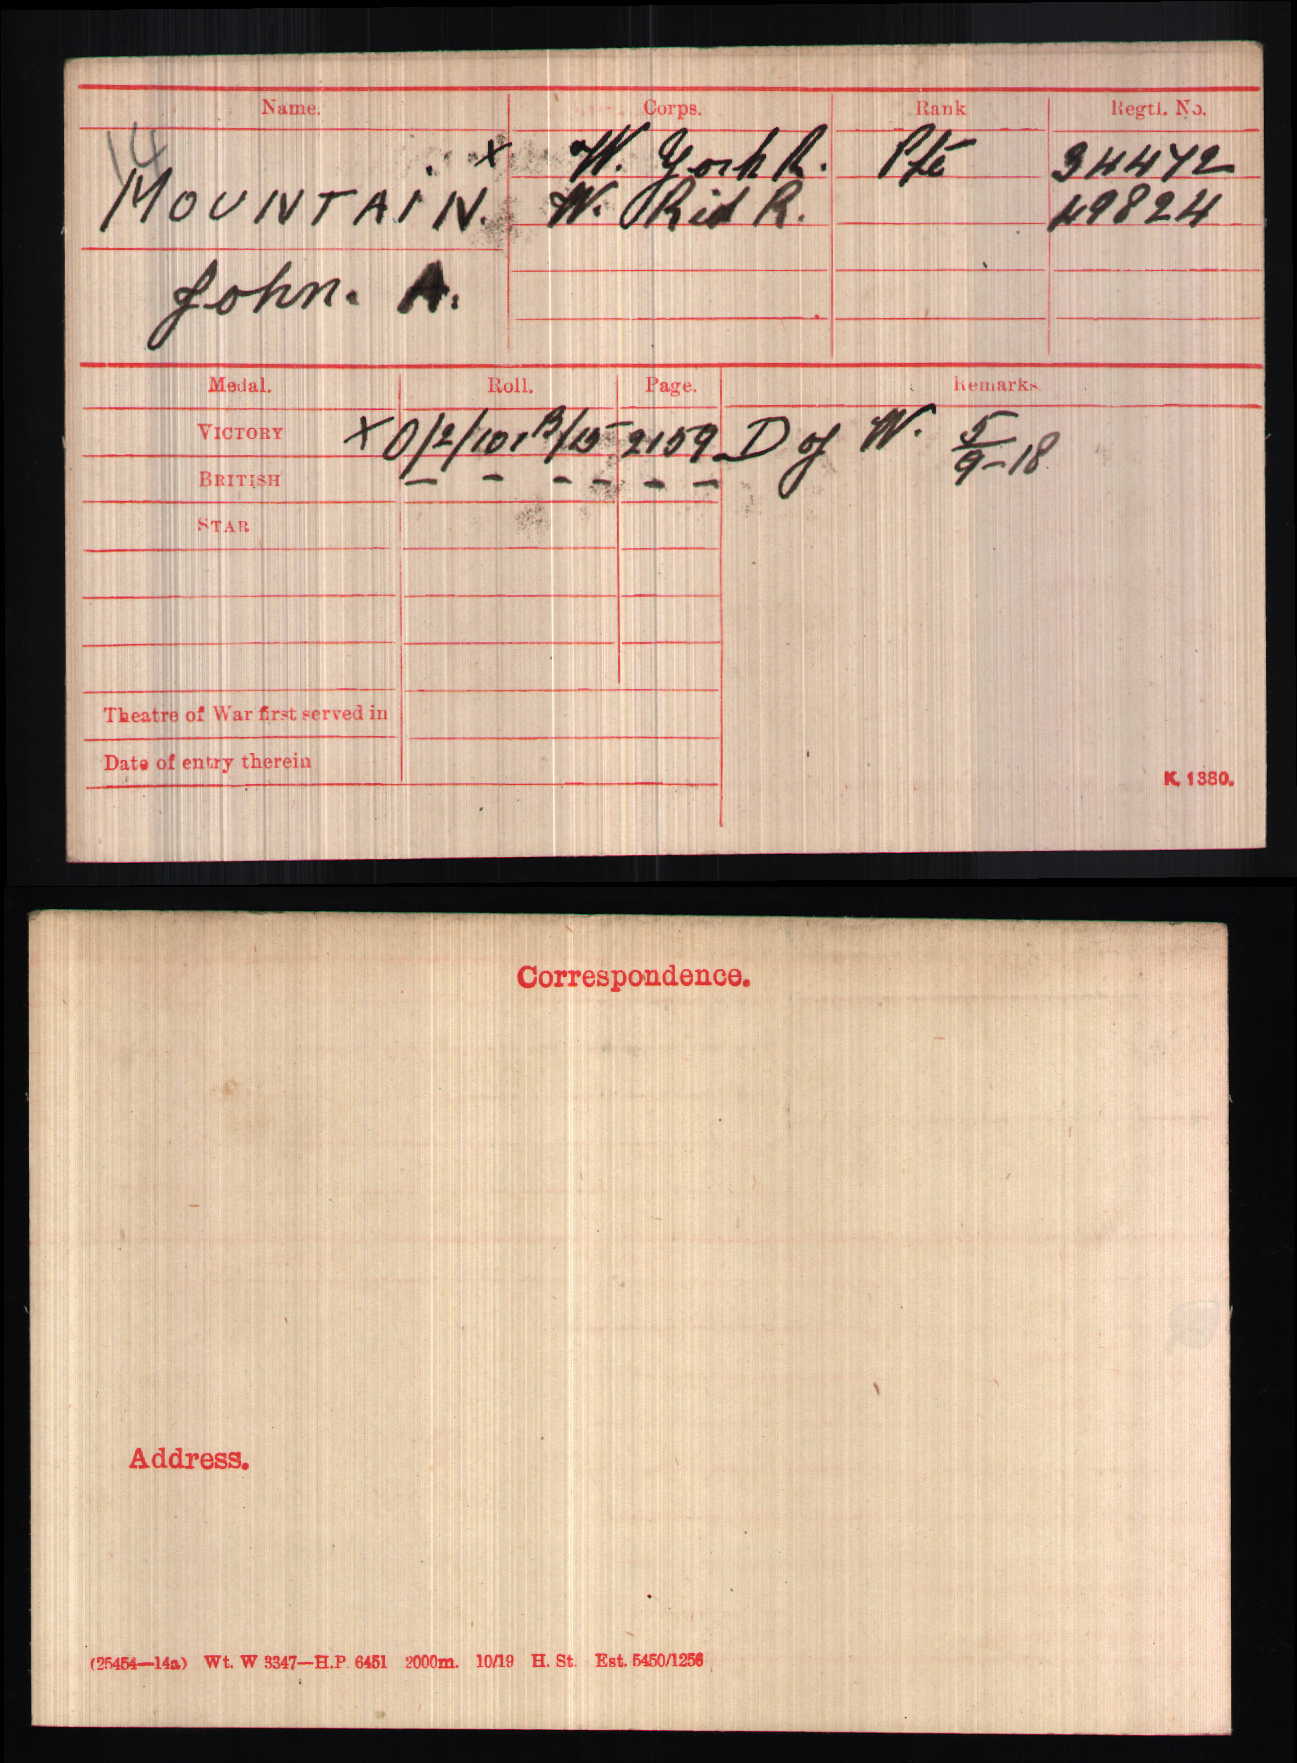 Name. Corps. Rank Regtl. No.
14
× W. York R. Pte 34472
MOUNTAIN. W. Rid R. 49824
John. A.
Medal. Roll. Page. Remarks
VICTORY × O/2/101 B/15 2159 D of W. 5/9-18
BRITISH – – – – – –
STAR
Theatre of War first served in
Date of entry therein
K. 1380.
Correspondence.
Address.
(25454—14a) Wt. W 3347—H.P. 6451 2000m. 10/19 H. St. Est. 5450/1256